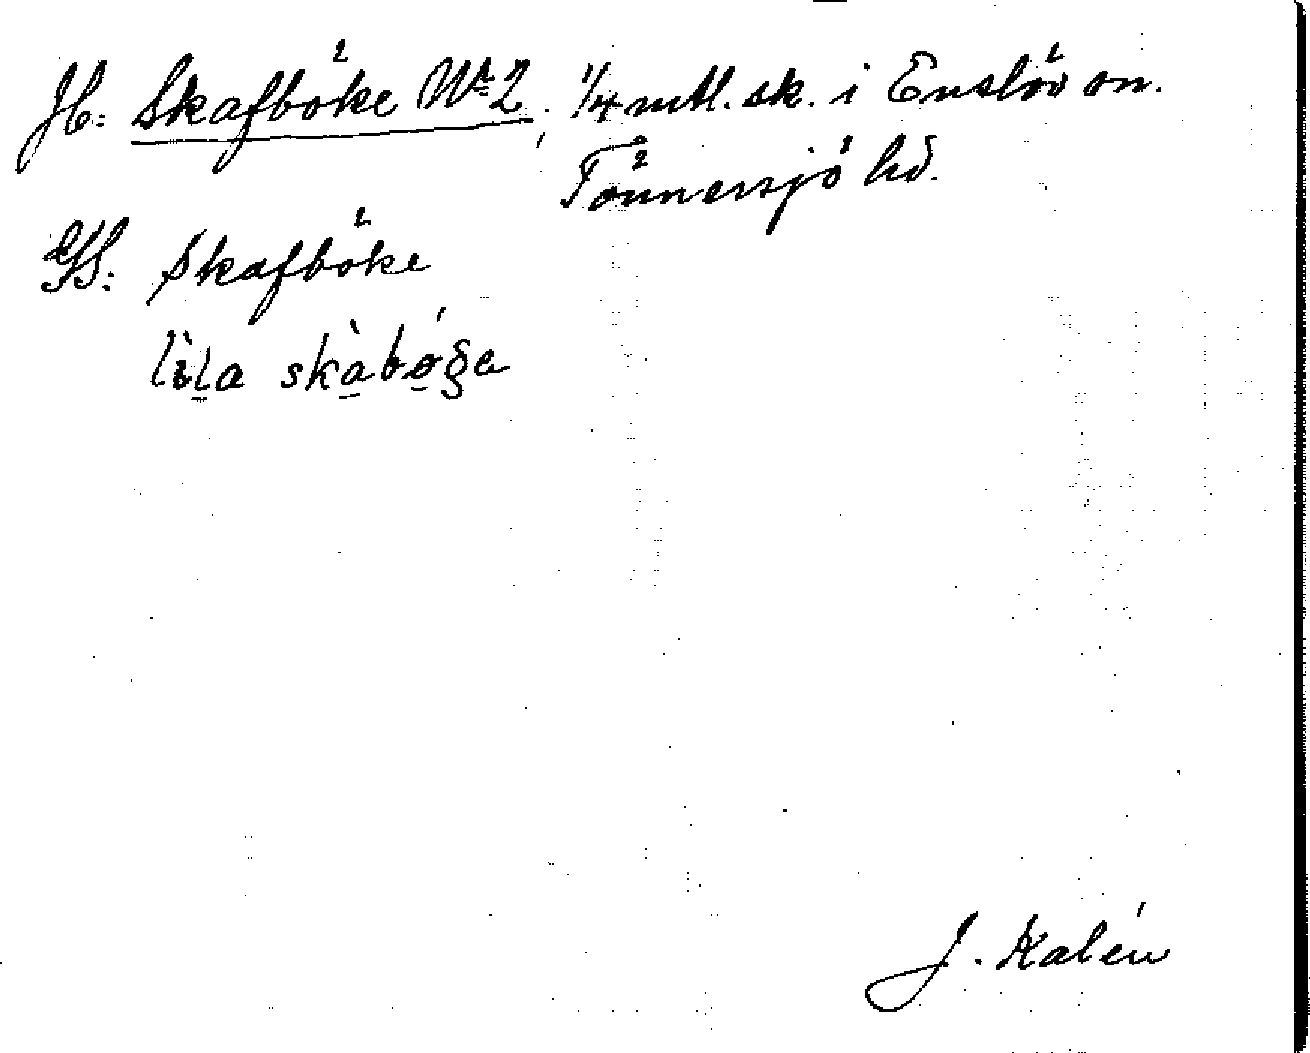 Jb: Skafböke Nº 2, 1/4 mtl. sk. i Enslöv sn.
Tönnersjö hd.
GS: Skafböke
lìla skàbǿga
J. Kalén